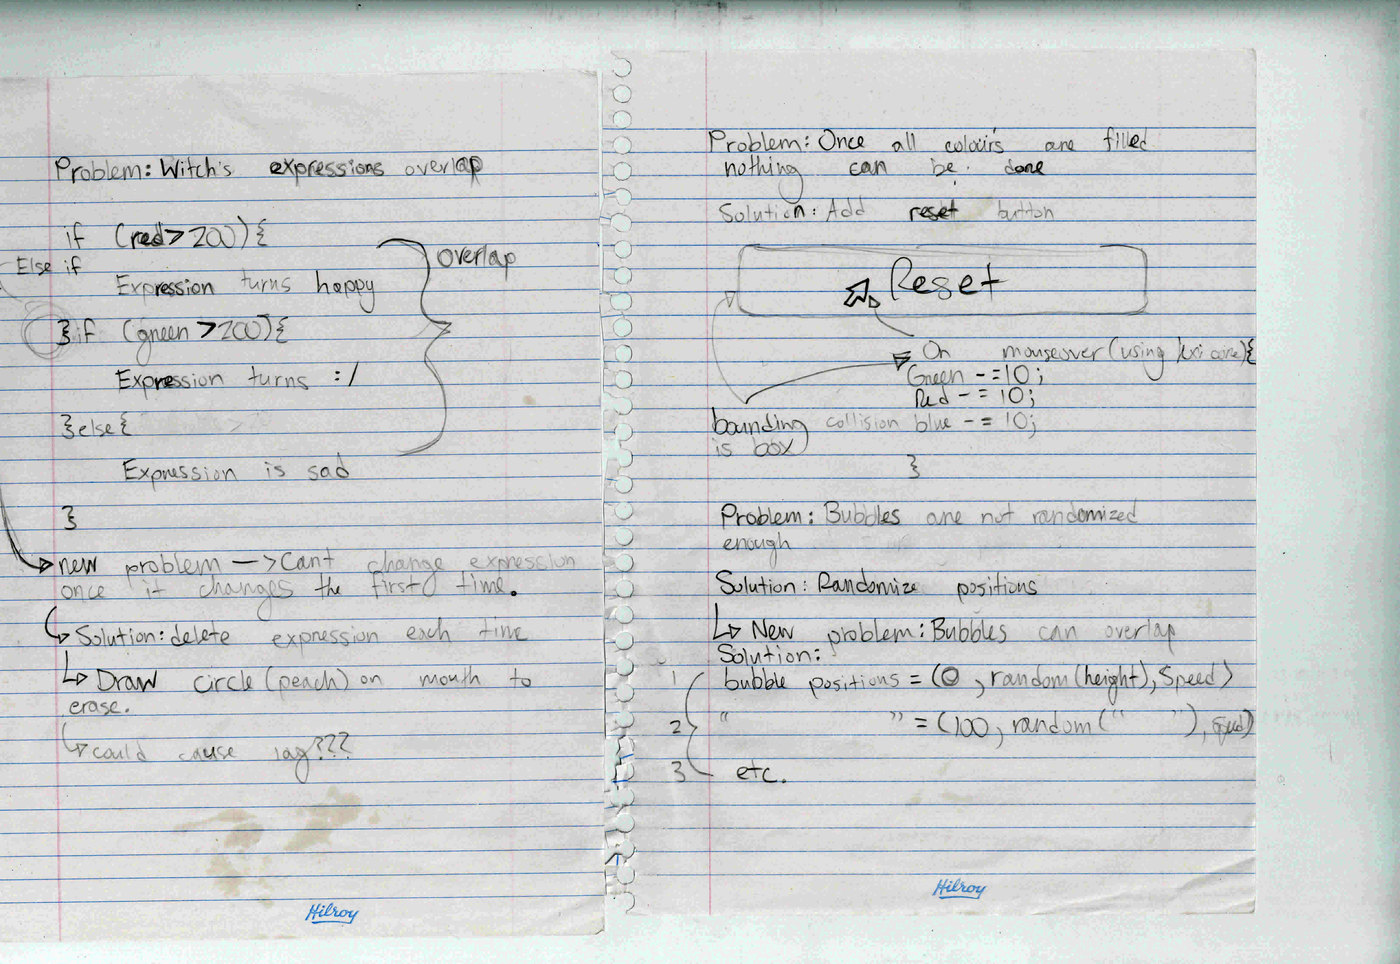 Problem: Witch's expressions overlap
if (red > 200) {
Else if
Expression turns happy
overlap
} if (green > 200) {
Expression turns :/
} else {
Expression is sad
}
new problem —> Cant change expression
once it changes the first time.
Solution: delete expression each time
Draw circle (peach) on mouth to
erase.
could cause lag???
Hilroy
Problem: Once all colours are filled
nothing can be done
Solution: Add reset button
Reset
On mouseover (using
Green -= 10;
Red -= 10;
bounding collision blue -= 10;
is box
}
Problem: Bubbles are not randomized
enough
Solution: Randomize positions
New problem: Bubbles can overlap
Solution:
1 bubble positions = (0, random(height), Speed)
2 " " = (100, random(" "), speed)
3 etc.
Hilroy